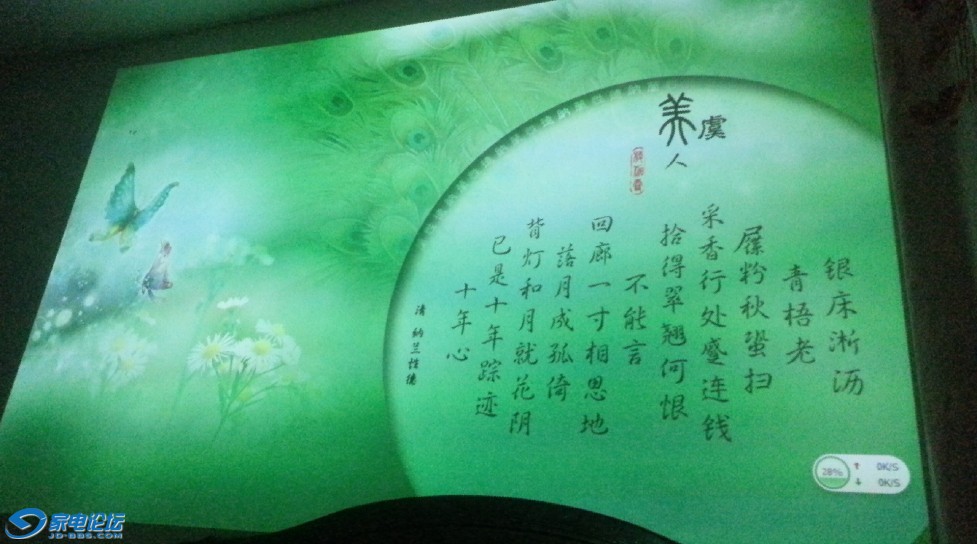 虞美人
银床淅沥
青梧老
屧粉秋蛩扫
采香行处蹙连钱
拾得翠翘何恨
不能言
回廊一寸相思地
落月成孤倚
背灯和月就花阴
已是十年踪迹
十年心
清 纳兰性德
28%
0K/S
0K/S
家电论坛
JD-BBS.COM